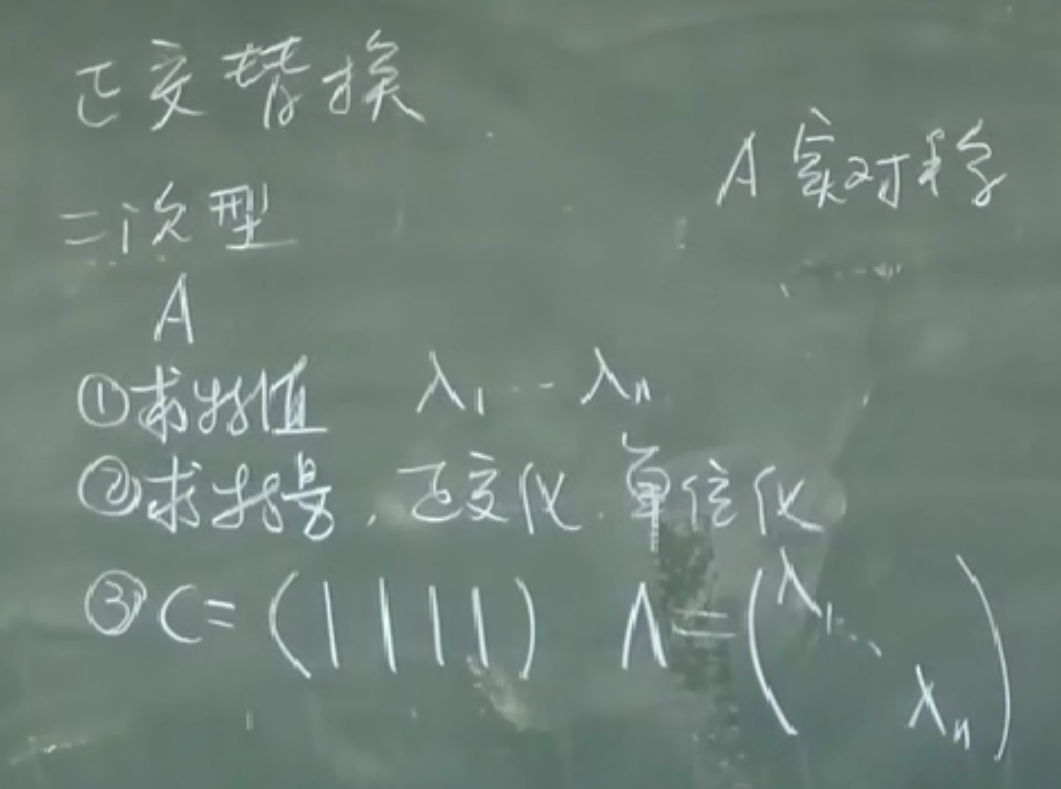 正交替换
A 实对称
二次型
A
①求特值 λ₁ … λₙ
②求特量, 正交化. 单位化
③ C = ( | | | | ) Λ = ( λ₁ ⋱ λₙ )